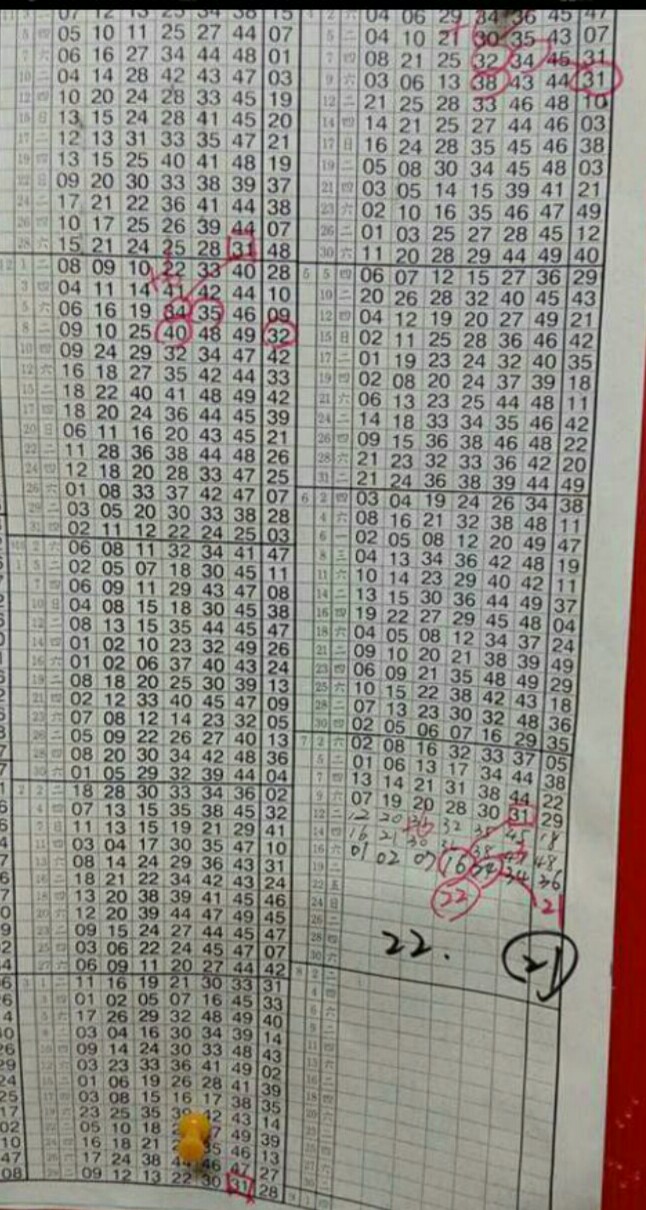 07 12 13 25 34 38 15
四 05 10 11 25 27 44 07
六 06 16 27 34 44 48 01
10 二 04 14 28 42 43 47 03
12 四 10 20 24 28 33 45 19
日 13 15 24 28 41 45 20
17 二 12 13 31 33 35 47 21
19 四 13 15 25 40 41 48 19
22 日 09 20 30 33 38 39 37
24 二 17 21 22 36 41 44 38
26 四 10 17 25 26 39 44 07
28 六 15 21 24 25 28 31 48
12 1 二 08 09 10 22 33 40 28
3 四 04 11 14 41 42 44 10
5 六 06 16 19 34 35 46 09
8 二 09 10 25 40 48 49 32
10 四 09 24 29 32 34 47 42
12 六 16 18 27 35 42 44 33
15 二 18 22 40 41 48 49 42
17 四 18 20 24 36 44 45 39
20 日 06 11 16 20 43 45 21
22 二 11 28 36 38 44 48 26
24 四 12 18 20 28 33 47 25
26 六 01 08 33 37 42 47 07
29 二 03 05 20 30 33 38 28
31 四 02 11 12 22 24 25 03
2 六 06 08 11 32 34 41 47
5 二 02 05 07 18 30 45 11
7 四 06 09 11 29 43 47 08
10 日 04 08 15 18 30 45 38
12 二 08 13 15 35 44 45 47
14 四 01 02 10 23 32 49 26
16 六 01 02 06 37 40 43 24
19 二 08 18 20 25 30 39 13
21 四 02 12 33 40 45 47 09
23 六 07 08 12 14 23 32 05
26 二 05 09 22 26 27 40 13
28 四 08 20 30 34 42 48 36
30 六 01 05 29 32 39 44 04
2 2 二 18 28 30 33 34 36 02
4 四 07 13 15 35 38 45 32
7 日 11 13 15 19 21 29 41
11 四 03 04 17 30 35 47 10
13 六 08 14 24 29 36 43 31
16 二 18 21 22 34 42 43 24
18 四 13 20 38 39 41 45 46
20 六 12 20 39 44 47 49 45
23 二 09 15 24 27 44 45 47
25 四 03 06 22 24 45 47 07
27 六 06 09 11 20 27 44 42
3 1 二 11 16 19 21 30 33 31
四 01 02 05 07 16 45 33
5 六 17 26 29 32 48 49 40
8 二 03 04 16 30 34 39 14
10 四 09 14 24 30 33 48 43
六 03 23 33 36 41 49 02
15 二 01 06 19 26 28 41 39
四 03 08 15 16 17 38 35
23 25 35 39 42 43 14
05 10 18 49 39
16 18 21 46 13
17 24 38 44 46 47 27
09 12 13 22 30 31 28
4 2 六 04 06 29 34 36 45 47
5 二 04 10 21 30 35 43 07
7 四 08 21 25 32 34 45 31
9 六 03 06 13 38 43 44 31
12 二 21 25 28 33 46 48 10
14 四 14 21 25 27 44 46 03
17 日 16 24 28 35 45 46 38
19 二 05 08 30 34 45 48 03
21 四 03 05 14 15 39 41 21
23 六 02 10 16 35 46 47 49
26 二 01 03 25 27 28 45 12
30 六 11 20 28 29 44 49 40
5 5 四 06 07 12 15 27 36 29
10 二 20 26 28 32 40 45 43
12 四 04 12 19 20 27 49 21
15 日 02 11 25 28 36 46 42
17 二 01 19 23 24 32 40 35
19 四 02 08 20 24 37 39 18
21 六 06 13 23 25 44 48 11
24 二 14 18 33 34 35 46 42
26 四 09 15 36 38 46 48 22
28 六 21 23 32 33 36 42 20
31 二 21 24 36 38 39 44 49
6 2 四 03 04 19 24 26 34 38
4 六 08 16 21 32 38 48 11
6 一 02 05 08 12 20 49 47
8 三 04 13 34 36 42 48 19
11 六 10 14 23 29 40 42 11
14 二 13 15 30 36 44 49 37
16 四 19 22 27 29 45 48 04
18 六 04 05 08 12 34 37 24
21 二 09 10 20 21 38 39 49
23 四 06 09 21 35 48 49 29
25 六 10 15 22 38 42 43 18
28 二 07 13 23 30 32 48 36
30 四 02 05 06 07 16 29 35
7 2 六 02 08 16 32 33 37 05
5 二 01 06 13 17 34 44 38
7 四 13 14 21 31 38 44 22
9 六 07 19 20 28 30 31 29
12 二 12 20 32 45 18
14 四 16 21 30 38 48
六 01 02 07 16 22 34 36
19 二 22 21
22 五
24 日
26 二 22. 21
28 四
30 六
8 2 二